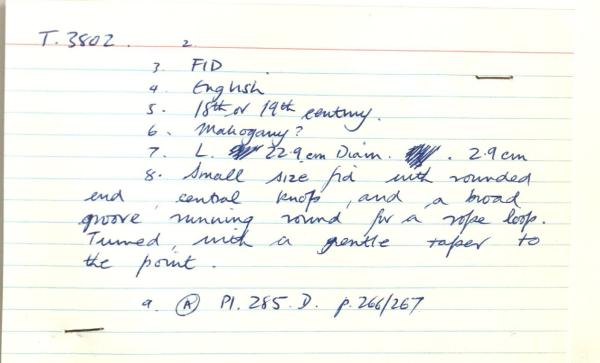 T. 3802. 2.
3. FID.
4. English
5. 18th or 19th century.
6. Mahogany?
7. L. 22.9 cm Diam. . 2.9 cm
8. Small size fid with rounded
end, central knop, and a broad
groove running round for a rope loop.
Turned, with a gentle taper to
the point.
9. (A) Pl. 285. D. p. 266/267